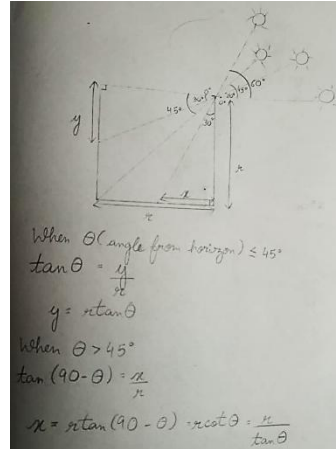 60°
45°
45°
30°
y
r
x
r
When θ (angle from horizon) ≤ 45°
tan θ = y/r
y = r tan θ
When θ > 45°
tan (90 - θ) = x/r
x = r tan (90 - θ) = r cot θ = r/tan θ